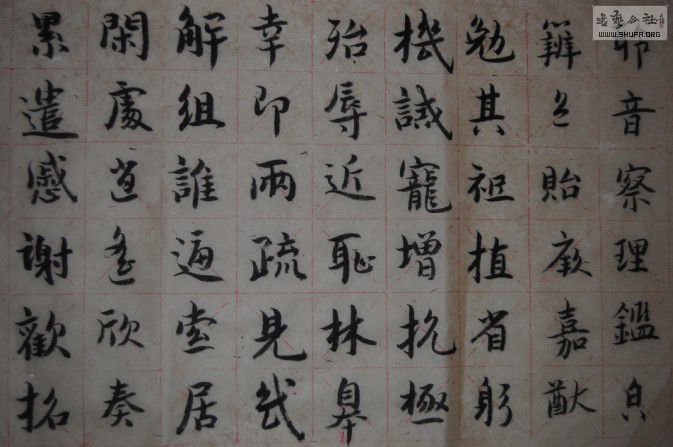 音察理鑑皃
色貽厥嘉猷
勉其祗植省躬
機誡寵增抗極
殆辱近恥林皋
幸即兩疏見
解組誰逼索居
閑處逍遙欣奏
累遣慼謝歡招
書藝公社
WWW.SHUFA.ORG